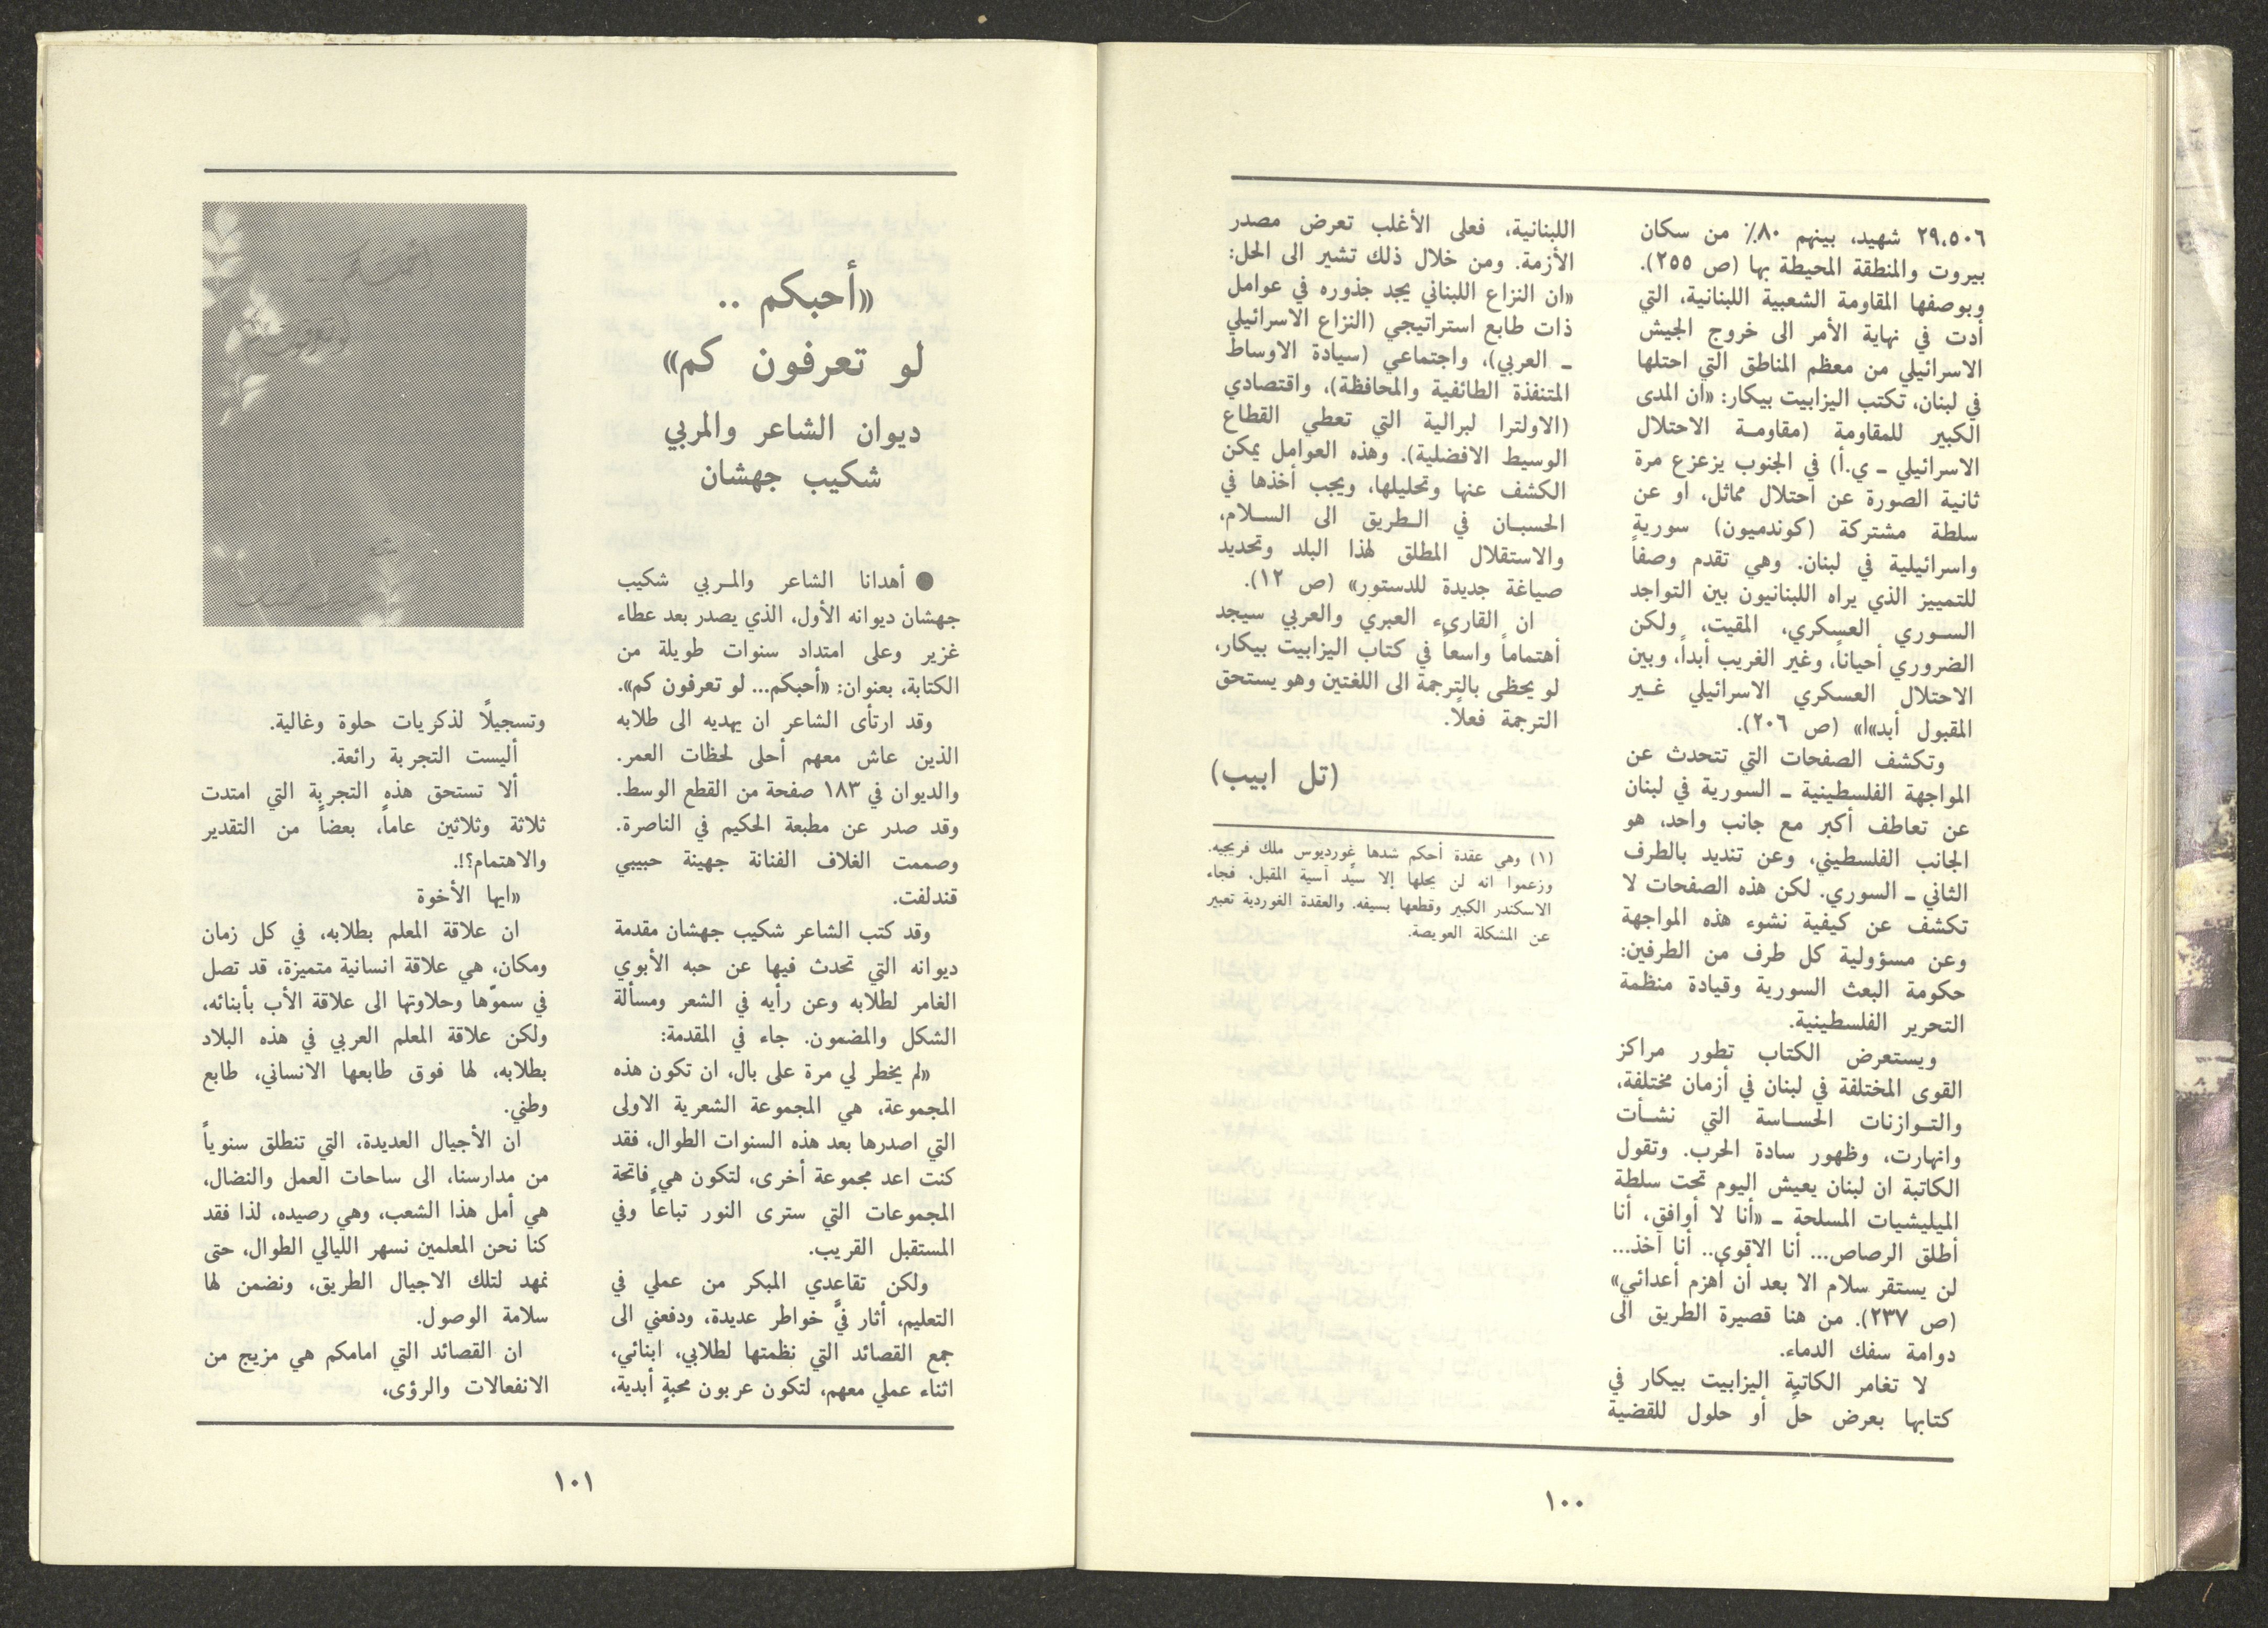 ٢٩،٥٠٦ شهيد، بينهم ٨٠٪ من سكان
بيروت والمنطقة المحيطة بها (ص ٢٥٥).
وبوصفها المقاومة الشعبية اللبنانية، التي
أدت في نهاية الأمر الى خروج الجيش
الاسرائيلي من معظم المناطق التي احتلها
في لبنان، تكتب اليزابيت بيكار: «ان المدى
الكبير للمقاومة (مقاومة الاحتلال
الاسرائيلي ـ ي.أ) في الجنوب يزعزع مرة
ثانية الصورة عن احتلال مماثل، او عن
سلطة مشتركة (كوندميون) سورية
واسرائيلية في لبنان. وهي تقدم وصفاً
للتمييز الذي يراه اللبنانيون بين التواجد
السوري العسكري، المقيت، ولكن
الضروري أحياناً، وغير الغريب أبداً، وبين
الاحتلال العسكري الاسرائيلي غير
المقبول أبد»ا» (ص ٢٠٦).
وتكشف الصفحات التي تتحدث عن
المواجهة الفلسطينية ـ السورية في لبنان
عن تعاطف أكبر مع جانب واحد، هو
الجانب الفلسطيني، وعن تنديد بالطرف
الثاني ـ السوري. لكن هذه الصفحات لا
تكشف عن كيفية نشوء هذه المواجهة
وعن مسؤولية كل طرف من الطرفين:
حكومة البعث السورية وقيادة منظمة
التحرير الفلسطينية.
ويستعرض الكتاب تطور مراكز
القوى المختلفة في لبنان في أزمان مختلفة،
والتوازنات الحساسة التي نشأت
وانهارت، وظهور سادة الحرب. وتقول
الكاتبة ان لبنان يعيش اليوم تحت سلطة
الميليشيات المسلحة ـ «أنا لا أوافق، أنا
أطلق الرصاص... أنا الاقوى.. أنا آخذ...
لن يستقر سلام الا بعد أن أهزم أعدائي»
(ص ٢٣٧). من هنا قصيرة الطريق الى
دوامة سفك الدماء.
لا تغامر الكاتبة اليزابيت بيكار في
كتابها بعرض حل أو حلول للقضية
اللبنانية، فعلى الأغلب تعرض مصدر
الأزمة. ومن خلال ذلك تشير الى الحل:
«ان النزاع اللبناني يجد جذوره في عوامل
ذات طابع استراتيجي (النزاع الاسرائيلي
ـ العربي)، واجتماعي (سيادة الاوساط
المتنفذة الطائفية والمحافظة)، واقتصادي
(الاولترا لبرالية التي تعطي القطاع
الوسيط الافضلية). وهذه العوامل يمكن
الكشف عنها وتحليلها، ويجب أخذها في
الحسبان في الطريق الى السلام،
والاستقلال المطلق لهذا البلد وتحديد
صياغة جديدة للدستور» (ص ١٢).
ان القارىء العبري والعربي سيجد
أهتماماً واسعاً في كتاب اليزابيت بيكار،
لو يحظى بالترجمة الى اللغتين وهو يستحق
الترجمة فعلاً.
(تل ابيب)
(١) وهي عقدة أحكم شدها غورديوس ملك فريجيه.
وزعموا انه لن يحلها إلا سيّد آسية المقبل. فجاء
الاسكندر الكبير وقطعها بسيفه. والعقدة الغوردية تعبير
عن المشكلة العويصة.
١٠٠
«أحبكم ..
لو تعرفون كم»
ديوان الشاعر والمربي
شكيب جهشان
● أهدانا الشاعر والمربي شكيب
جهشان ديوانه الأول، الذي يصدر بعد عطاء
غزير وعلى امتداد سنوات طويلة من
الكتابة، بعنوان: «أحبكم... لو تعرفون كم».
وقد ارتأى الشاعر ان يهديه الى طلابه
الذين عاش معهم أحلى لحظات العمر.
والديوان في ١٨٣ صفحة من القطع الوسط.
وقد صدر عن مطبعة الحكيم في الناصرة.
وصممت الغلاف الفنانة جهينة حبيبي
قندلفت.
وقد كتب الشاعر شكيب جهشان مقدمة
ديوانه التي تحدث فيها عن حبه الأبوي
الغامر لطلابه وعن رأيه في الشعر ومسألة
الشكل والمضمون. جاء في المقدمة:
«لم يخطر لي مرة على بال، ان تكون هذه
المجموعة، هي المجموعة الشعرية الاولى
التي اصدرها بعد هذه السنوات الطوال، فقد
كنت اعد مجموعة أخرى، لتكون هي فاتحة
المجموعات التي سترى النور تباعاً وفي
المستقبل القريب.
ولكن تقاعدي المبكر من عملي في
التعليم، أثار فيَّ خواطر عديدة، ودفعني الى
جمع القصائد التي نظمتها لطلابي، ابنائي،
اثناء عملي معهم، لتكون عربون محبةٍ أبدية،
أحبكم ..
لو تعرفون كم
شعر
شكيب جهشان
وتسجيلاً لذكريات حلوة وغالية.
أليست التجربة رائعة.
ألا تستحق هذه التجربة التي امتدت
ثلاثة وثلاثين عاماً، بعضاً من التقدير
والاهتمام؟!.
«ايها الأخوة
ان علاقة المعلم بطلابه، في كل زمان
ومكان، هي علاقة انسانية متميزة، قد تصل
في سموّها وحلاوتها الى علاقة الأب بأبنائه،
ولكن علاقة المعلم العربي في هذه البلاد
بطلابه، لها فوق طابعها الانساني، طابع
وطني.
ان الأجيال العديدة، التي تنطلق سنوياً
من مدارسنا، الى ساحات العمل والنضال،
هي أمل هذا الشعب، وهي رصيده، لذا فقد
كنا نحن المعلمين نسهر الليالي الطوال، حتى
نمهد لتلك الاجيال الطريق، ونضمن لها
سلامة الوصول.
ان القصائد التي امامكم هي مزيج من
الانفعالات والرؤى،
١٠١